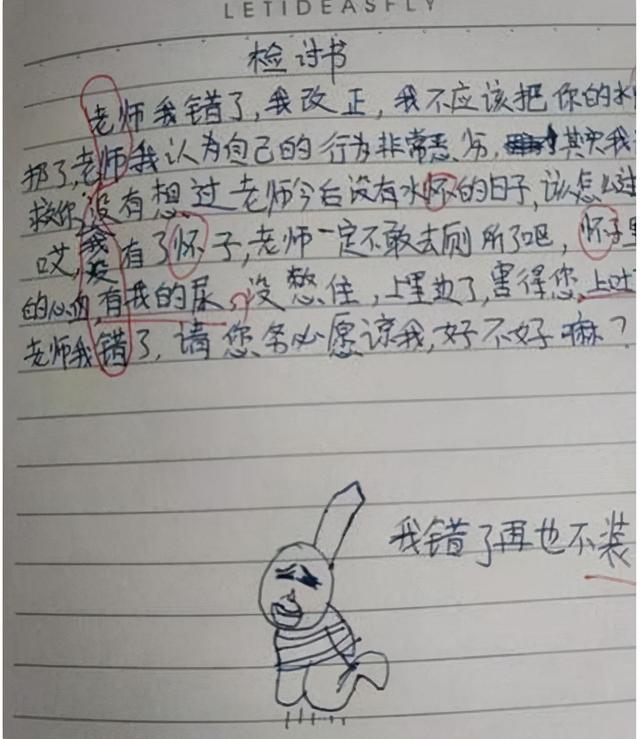 LETIDEASFLY
检讨书
老师我错了,我改正,我不应该把你的水
扔了,老师我认为自己的行为非常恶劣,其实我
救你,没有想过老师今后没有水怀的日子,该怎么过
哎,我没有了怀子,老师一定不敢去厕所了吧,怀子里
的心血,有我的尿,没憋住,上里边了,害得您,上吐
老师我错了,请您务必愿谅我,好不好嘛?
我错了再也不装